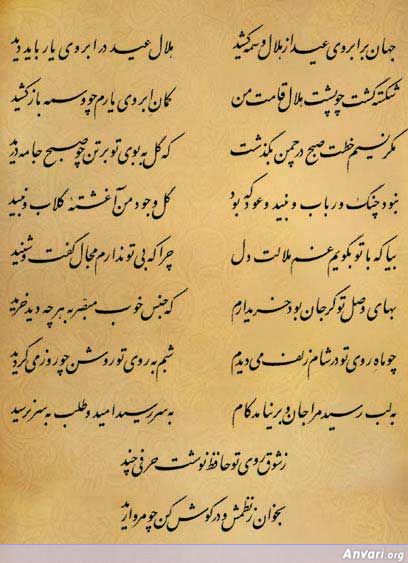 جهان بر ابروی عید از هلال وسمه کشید هلال عید در ابروی یار باید دید
شکسته گشت چو پشت هلال قامت من کمان ابروی یارم چو وسمه بازکشید
مگر نسیم خطت صبح در چمن بگذشت که گل به بوی تو بر تن چو صبح جامه درید
نبود چنگ و رباب و نبید و عود که بود گل وجود من آغشته گلاب و نبید
بیا که با تو بگویم غم ملالت دل چرا که بی تو ندارم مجال گفت و شنید
بهای وصل تو گر جان بود خریدارم که جنس خوب مبصر به هر چه دید خرید
چو ماه روی تو در شام زلف می دیدم شبم به روی تو روشن چو روز می گردید
به لب رسید مرا جان و برنیامد کام به سر رسید امید و طلب به سر نرسید
ز شوق روی تو حافظ نوشت حرفی چند
بخوان ز نظمش و در گوش کن چو مروارید
Anvari.org